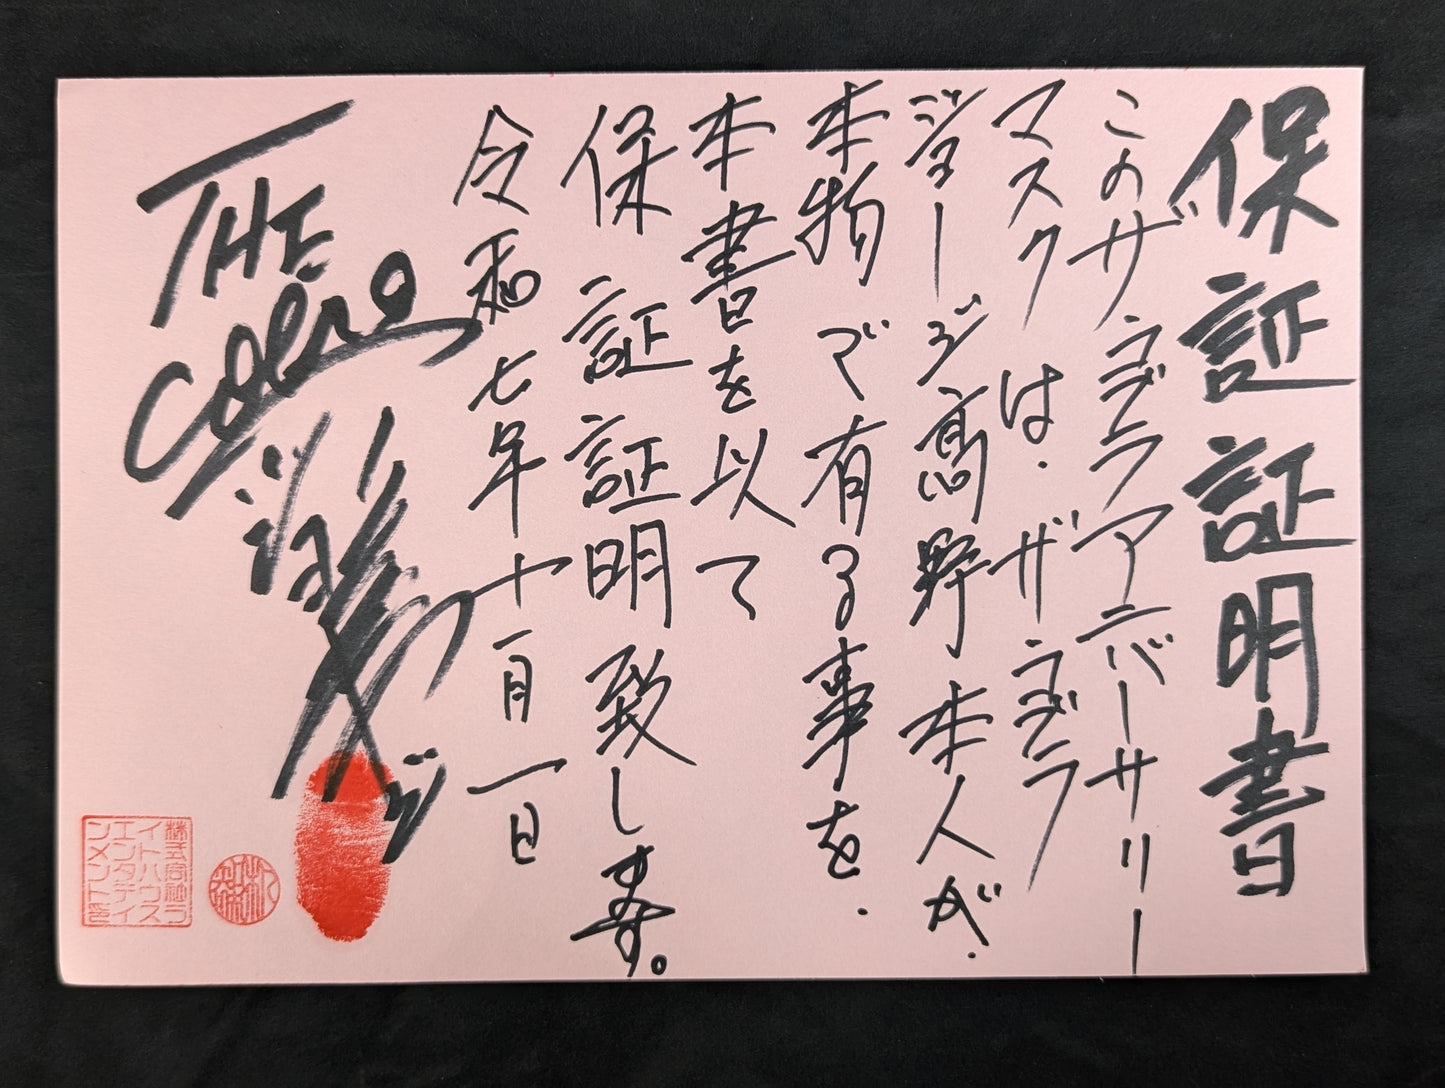 保証証明書
このザコブラアニバーサリー
マスクは.ザコブラ
ジョージ高野本人が.
本物で有る事を.
本書を以て
保証証明致します。
令和七年十一月一日
THE
Cobra
ジョージ
株式会社ラ
イトハウス
エンタテイ
ンメント